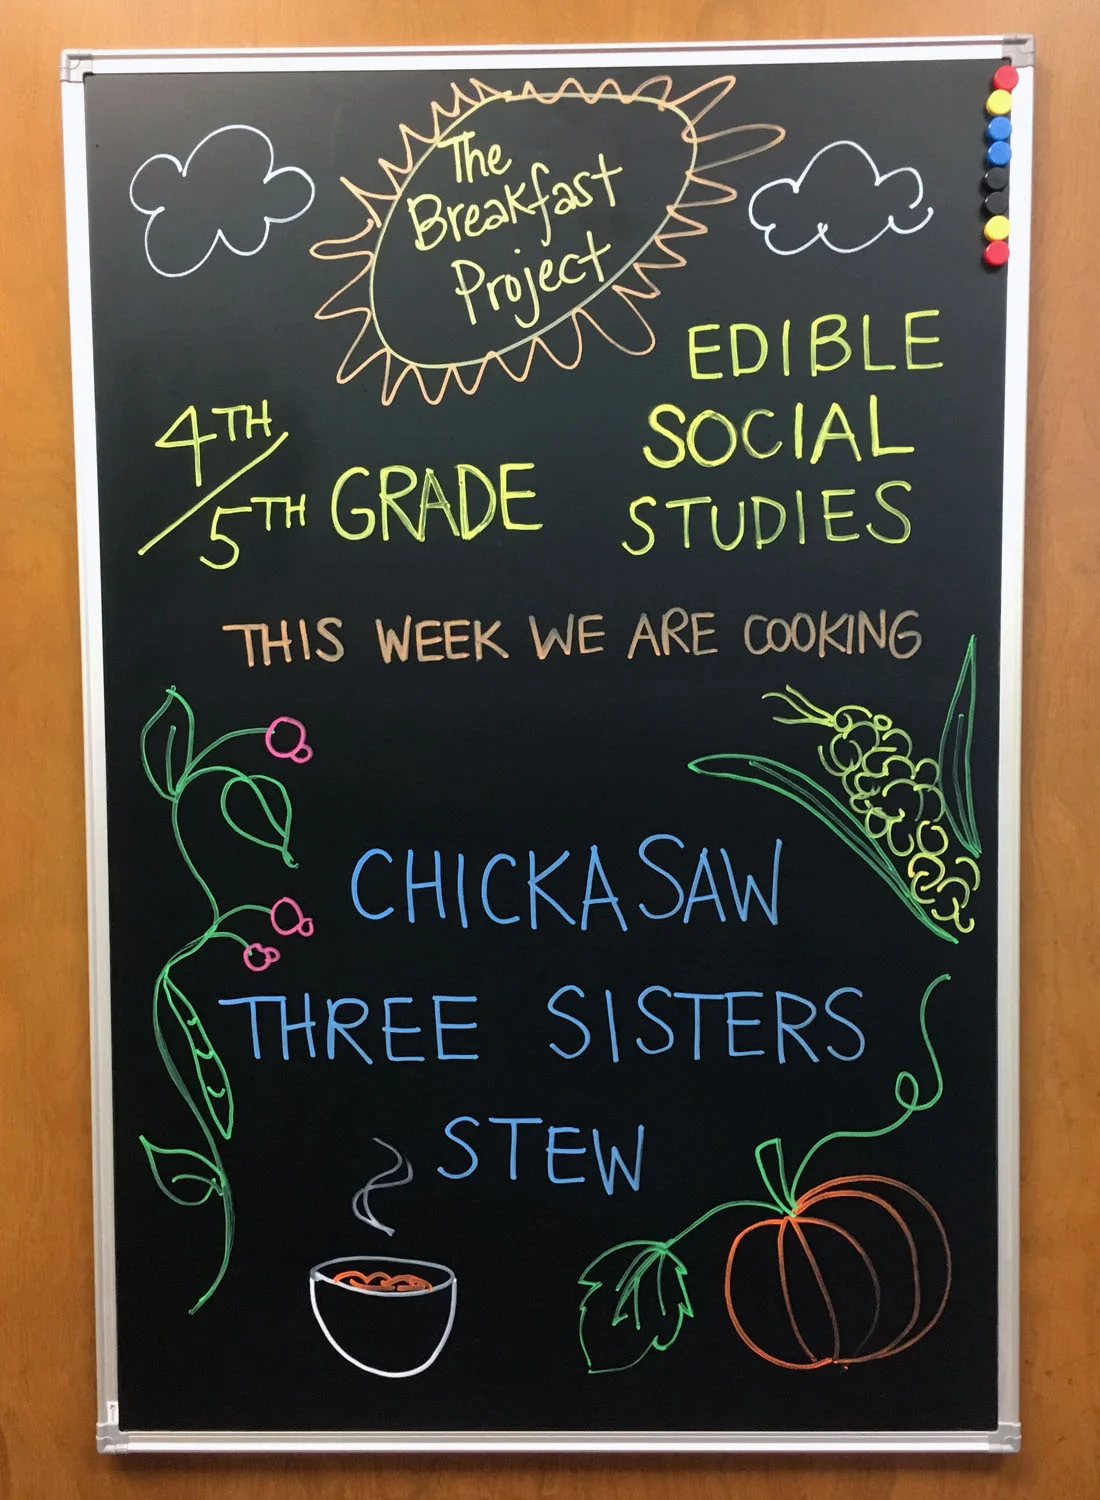 The
Breakfast
Project
EDIBLE
SOCIAL
STUDIES
4TH/5TH GRADE
THIS WEEK WE ARE COOKING
CHICKASAW
THREE SISTERS
STEW